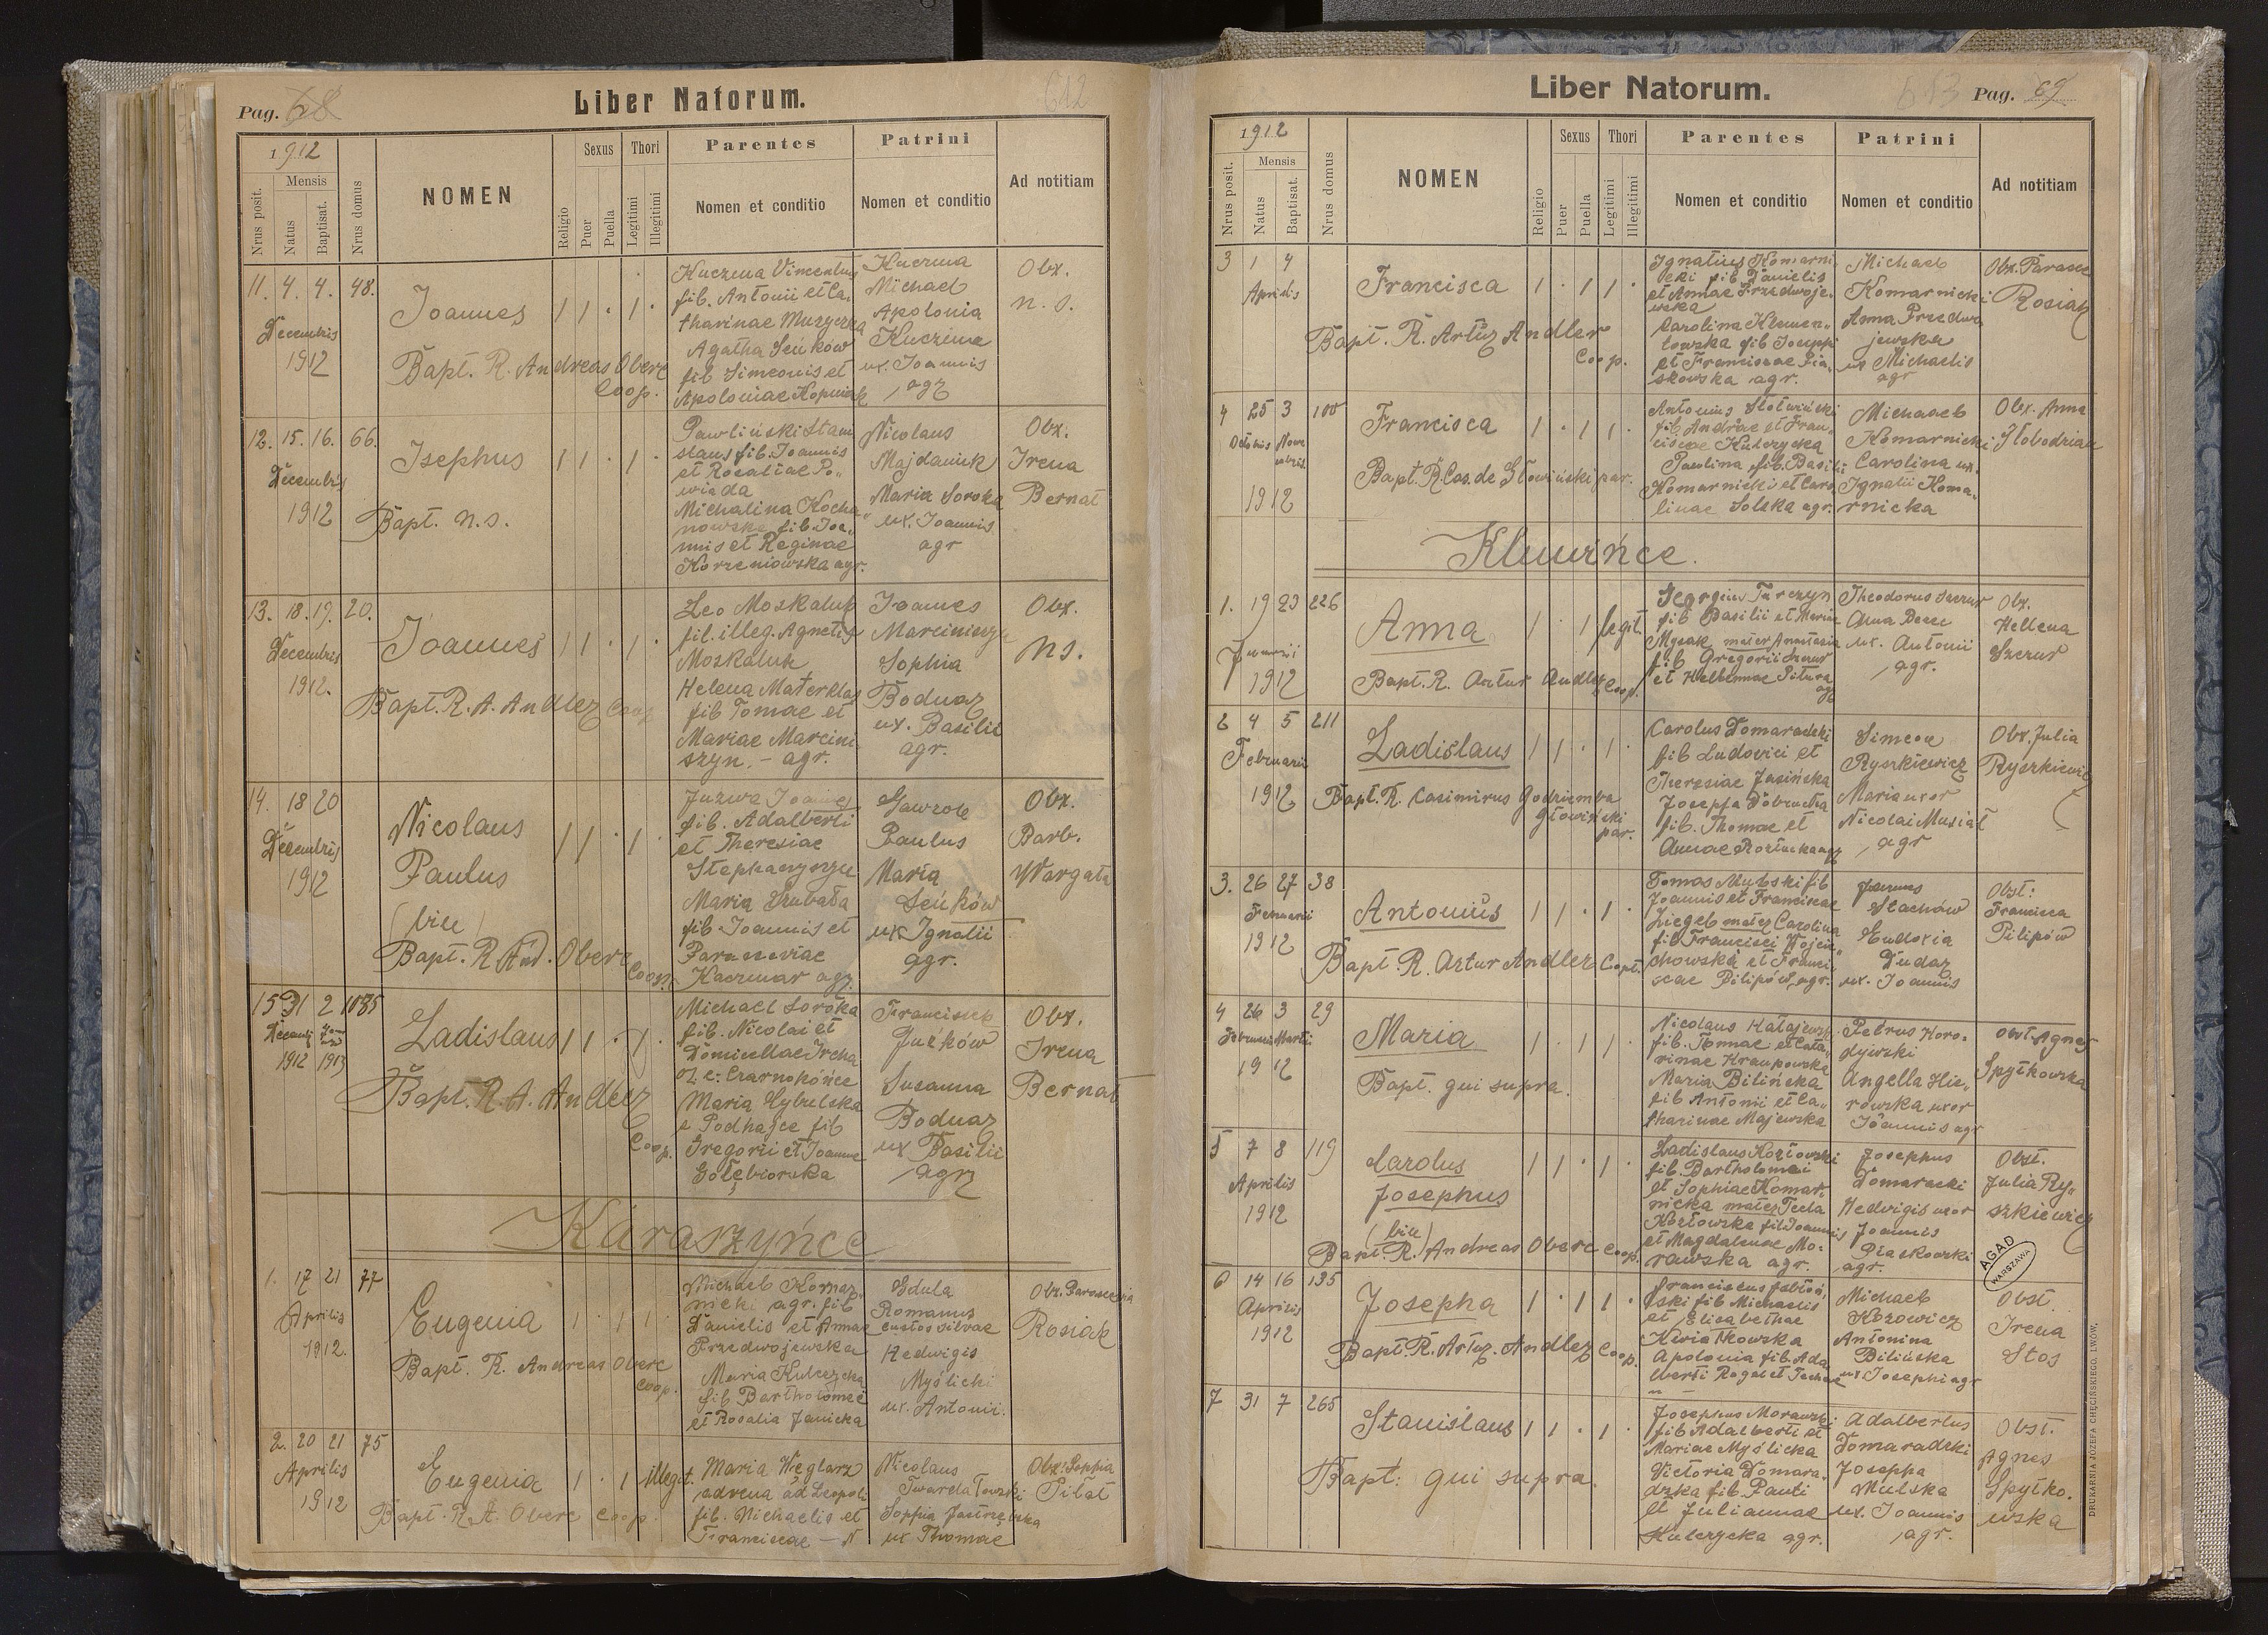 Pag. 68
Liber Natorum.
612
1912
Nrus posit.
Mensis
Natus
Baptisat.
Nrus domus
NOMEN
Religio
Sexus
Puer
Puella
Thori
Legitimi
Illegitimi
Parentes
Nomen et conditio
Patrini
Nomen et conditio
Ad notitiam
11. 4. 4. 48.
Decembris
1912
Joannes
Bapt. R. Andreas Oberc
Coop.
Kuczma Vincentius
fil. Antonii et Ca-
tharinae Muzyczka
Agatha Seńków
fil. Simeonis et
Apoloniae Kopniak
Kuczma
Michael
Apolonia
Kuczma
ux. Joannis
agr
Obx.
n. s.
12. 15. 16. 66.
Decembris
1912
Josephus
Bapt. n.s.
Pawliński Stani
slaus fil. Joannis
et Rosaliae Po-
wiada
Michalina Kocha-
nowska fil. Joa-
nnis et Reginae
Korzeniowska agr.
Nicolaus
Majdaniuk
Maria Soroka
ux. Joannis
agr
Obx.
Irena
Bernat
13. 18. 19. 20.
Decembris
1912.
Joannes
Bapt. R. A. Andler Coop
Leo Moskaluk
fil. illeg. Agnetis
Moskaluk
Helena Materklas
fil Tomae et
Mariae Marcini
szyn. - agr.
Joannes
Marciniszyn
Sophia
Bodnar
ux. Basilii
agr.
Obx.
ns.
14. 18 20
Decembris
1912
Nicolaus
Paulus
(bin)
Bapt. R. And. Oberc
Coop.
Juzwa Joannes
fil. Adalberti
et Theresiae
Stephaniszyn
Maria
fil. Joannis et
Parasceviae
Kaczmar agr.
Gawrok
Paulus
Maria
Seńków
ux Ignatii
agr.
Obx.
Barb.
Wargata
15 31 2 1085
1912 1913
Ladislaus
Bapt. R. A. Andler
Coop.
Michael Soroka
fil. Nicolai et
Domicellae Ircha
Czarnokońce
Maria Hybulska
e Podhajce fil
Gregorii et Joannae
Gołębiowska
Franciscus
Juzków
Susanna
Bodnar
ux Basilii
agr
Obx.
Irena
Bernat
Karaszyńce
1. 17 21 77
Aprilis
1912.
Eugenia
Bapt. R. Andreas Oberc
Coop.
Michael Komar
nicki agr. fil
Danielis et Annae
Przedwojewska
Maria Kulczycka
fil Bartholomei
et Rosalia Janicka
Gdula
Romanus
custos silvae
Hedwigis
Myślicki
ux. Antonii.
Obx. Parascevia
Rosiak
2. 20 21 75
Aprilis
1912
Eugenia
illegit.
Bapt. R. A. Oberc Coop.
Maria Węglarz
advena ad Leopoli
fil. Michaelis et
Franciscae - N
Nicolaus
Sophia Jastrzębska
ux Thomae
Obx. Sophia
Pilat
Liber Natorum.
613
Pag. 69
1912
Nrus posit.
Mensis
Natus
Baptisat.
Nrus domus
NOMEN
Religio
Sexus
Puer
Puella
Thori
Legitimi
Illegitimi
Parentes
Nomen et conditio
Patrini
Nomen et conditio
Ad notitiam
3 1 4
Aprilis
Francisca
Bapt. R. Artur Andler
Coop.
Ignatius Komarni
cki fil Danielis
et Annae Przedwoje-
wska
Carolina Klemen-
towska fil Josephi
et Franciscae Pia-
skowska agr.
Michael
Komarnicki
Anna Przedwo
jewska
ux Michaelis
agr
Obx. Parasce
Rosiak
4 25 3 100
Octobris Nove
mbris
1912
Francisca
Bapt. R. Cas. de Głowiński par.
Antonius Słotwiński
fil Andrae et Fran-
ciscae Kulczycka
Paulina fil. Basilii
Komarnicki et Caro
linae Solska agr.
Michael
Komarnicki
Carolina ux.
Ignatii Koma-
rnicka
Obx. Anna
Słobodzian
Kluwińce.
1. 19 23 226
Januarii
1912
Anna
legit.
Bapt. R. Artur Andler Coop.
Georgius Turczyn
fil Basilii et Mariae
Mysak mater Anastasia
fil Gregorii Szczur
et Helennae Pitura
agr
Theodorus Szczur
Anna Becc
ux. Antonii
agr.
Obx.
Hellena
Szczur
2 4 5 211
Februarii
1912
Ladislaus
Bapt. R. Casimirus Godziemba
Głowiński
par.
Carolus Domaradzki
fil Ludovici et
Theresiae Jasińska
Josepha Dobrucka
fil. Thomae et
Annae
Simeon
Ryszkiewicz
Maria uxor
Nicolai Musiał
agr
Obx. Julia
Ryszkiewicz
3. 26 27 38
Februarii
1912
Antonius
Bapt. R. Artur Andler Coop.
Tomas Mulski fil
Joannis et Franciscae
Ziegel mater Carolina
fil Francisci Wojcie-
chowska et Franci-
scae Pilipów agr.
Joannes
Stachów
Eudoxia
Dudar
ux. Joannis
Obst:
Francisca
Pilipów
4 26 3 29
Februarii Martii
1912
Maria
Bapt. qui supra.
Nicolaus Hałajewski
fil. Tomae et Cata-
rinae Kraupowska
Maria Bilińska
fil Antonii et Ca-
tharinae Majewska
Petrus Horo-
dyński
Angella Hie-
rowska uxor
Joannis agr
obst. Agnes
Spytkowska
5 7 8 119
Aprilis
1912
Carolus
Josephus
(bin)
Bapt. R. Andreas Oberc Coop.
Ladislaus Kozłowski
fil. Bartholomei
et Sophiae Komar-
nicka mater Tecla
Kozłowska fil Joannis
et Magdalenae Mo-
rawska agr.
Josephus
Domaracki
Hedvigis uxor
Joannis
Piaskowski
agr.
Obst.
Julia Ry-
szkiewicz
AGAD
WARSZAWA
6 14 16 135
Aprilis
1912
Josepha
Bapt. R. Artur. Andler Coop.
Franciscus Jabłoń-
ski fil Michaelis
et Elisabethae
Kwiatkowska
Apolonia fil. Ada
lberti Rogal et Teclae
Michael
Kozowicz
Antonina
Bilińska
ux Josephi agr
Obst.
Irena
Stos
7 31 7 265
Stanislaus
Bapt: qui supra
Josephus Morawski
fil Adalberti et
Mariae Myślicka
Victoria Domara-
dzka fil. Pauli
et Juliannae
Kulczycka agr.
Adalbertus
Domaradzki
Josepha
Mulska
ux. Joannis
agr.
Obst.
Agnes
Spytko-
wska
DRUKARNIA JÓZEFA CHĘCIŃSKIEGO, LWÓW.